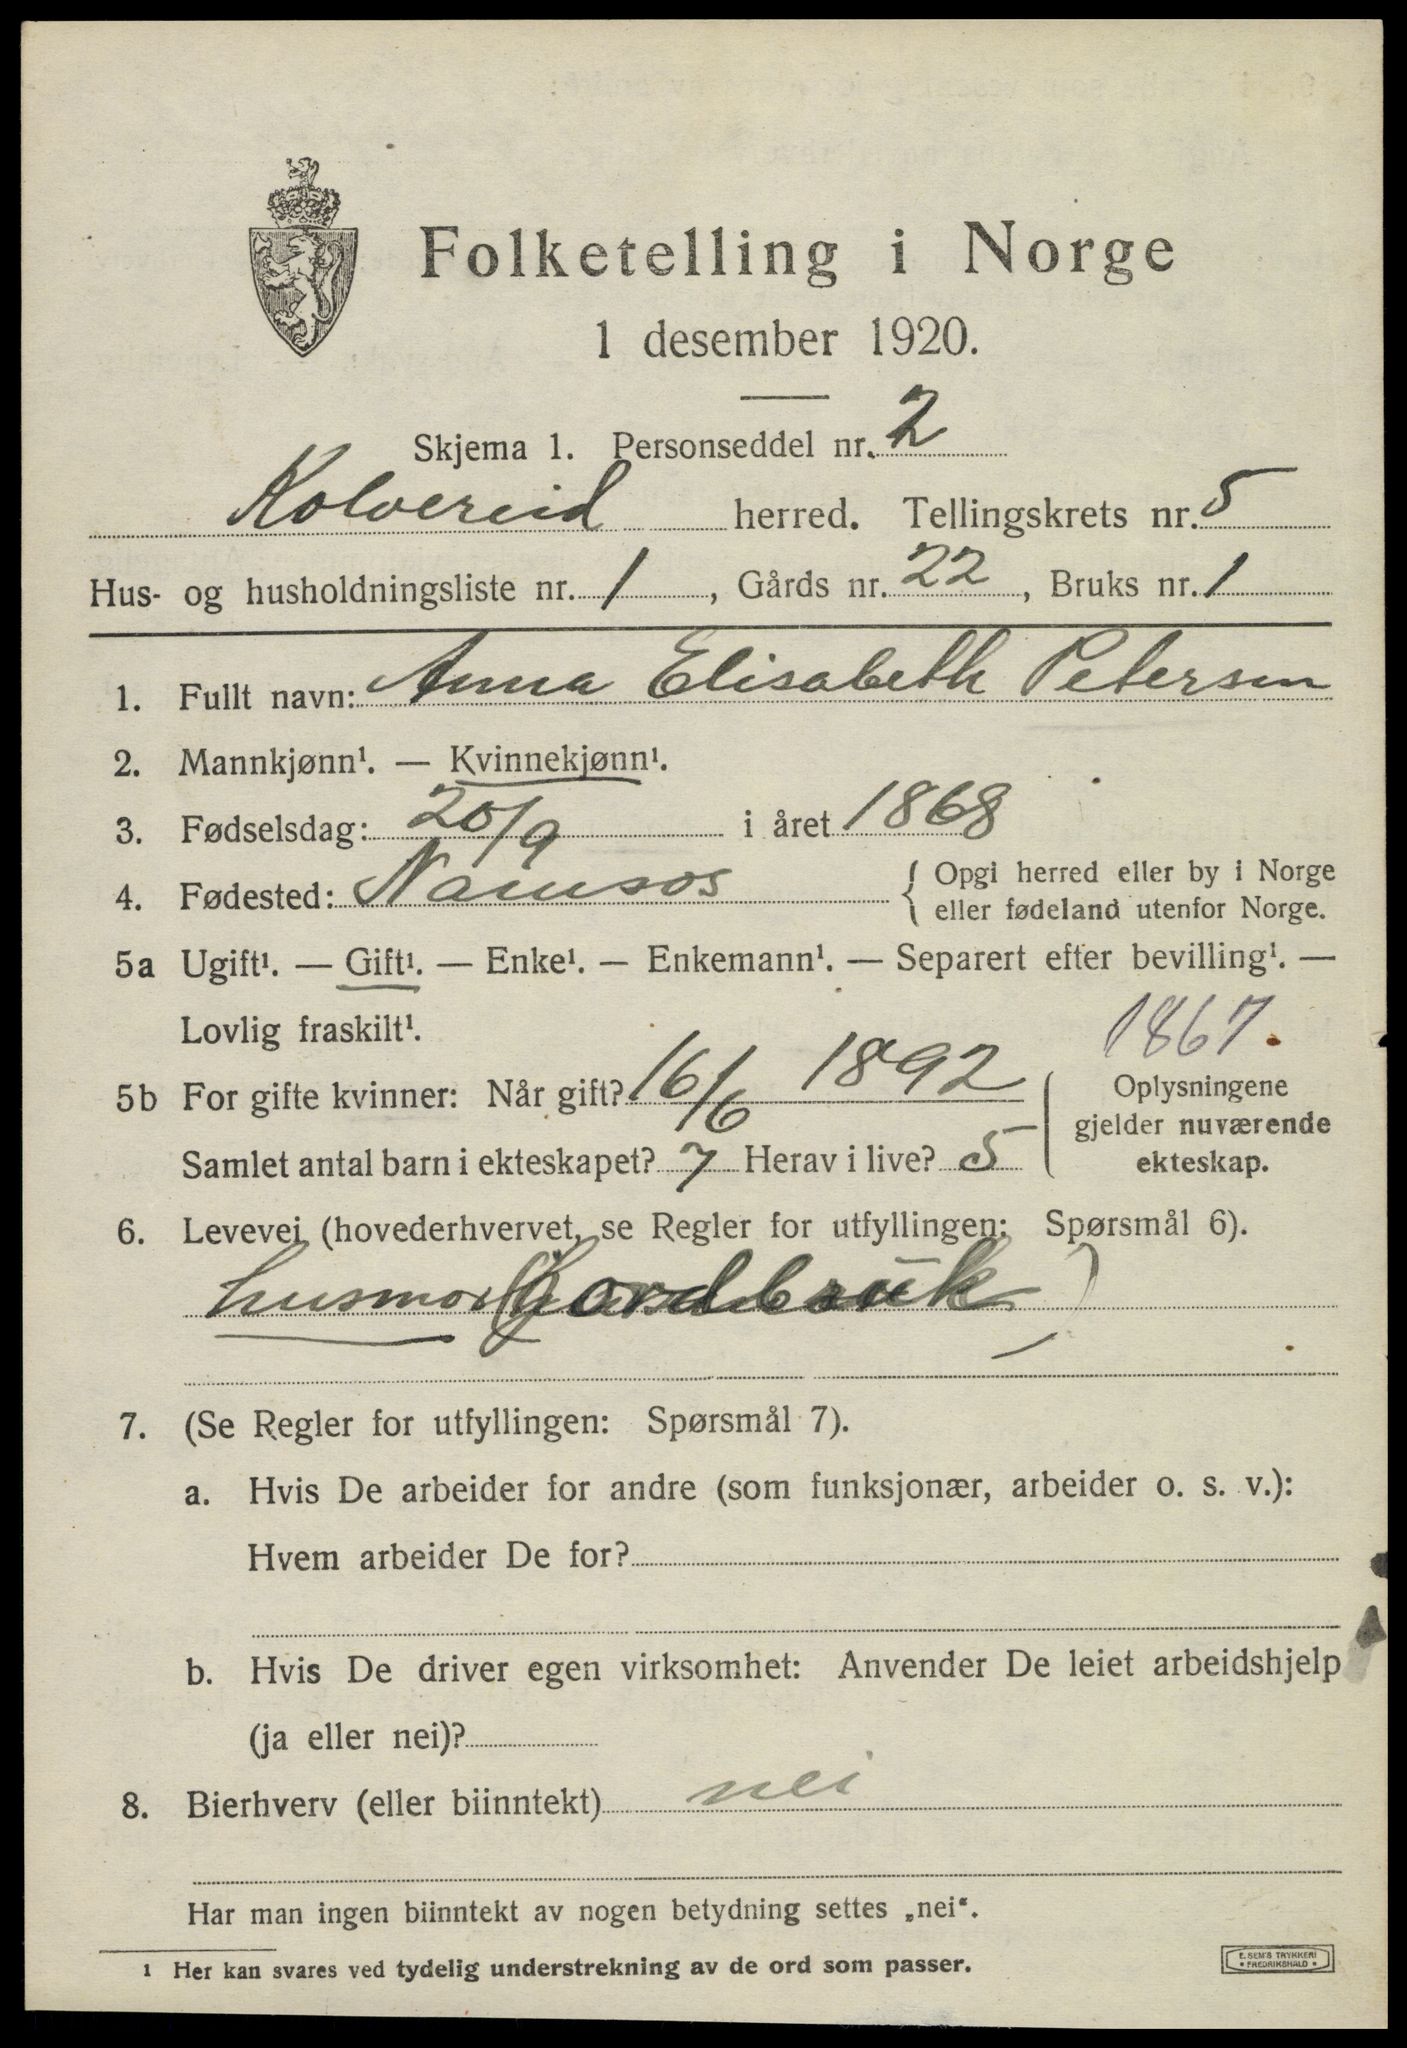 Folketelling i Norge
1 desember 1920.
Skjema 1. Personseddel nr. 2
Kolvereid herred. Tellingskrets nr. 5
Hus- og husholdningsliste nr. 1, Gårds nr. 22, Bruks nr. 1
1. Fullt navn: Anna Elisabeth Petersen
2. Mannkjønn¹. — Kvinnekjønn¹.
3. Fødselsdag: 20/9 i året 1868
4. Fødested: Namsos { Opgi herred eller by i Norge
eller fødeland utenfor Norge.
5a Ugift¹. — Gift¹. — Enke¹. — Enkemann¹. — Separert efter bevilling¹. —
Lovlig fraskilt¹.
1867.
5b For gifte kvinner: Når gift? 16/6 1892
Samlet antal barn i ekteskapet? 7 Herav i live? 5
Oplysningene
gjelder nuværende
ekteskap.
6. Levevei (hovederhvervet, se Regler for utfyllingen: Spørsmål 6).
husmor (Jordbruk)
7. (Se Regler for utfyllingen: Spørsmål 7).
a. Hvis De arbeider for andre (som funksjonær, arbeider o. s. v.):
Hvem arbeider De for?
b. Hvis De driver egen virksomhet: Anvender De leiet arbeidshjelp
(ja eller nei)?
8. Bierhverv (eller biinntekt) nei
Har man ingen biinntekt av nogen betydning settes „nei“.
¹ Her kan svares ved tydelig understrekning av de ord som passer.
E. SEM'S TRYKKERI
• FREDRIKSHALD •